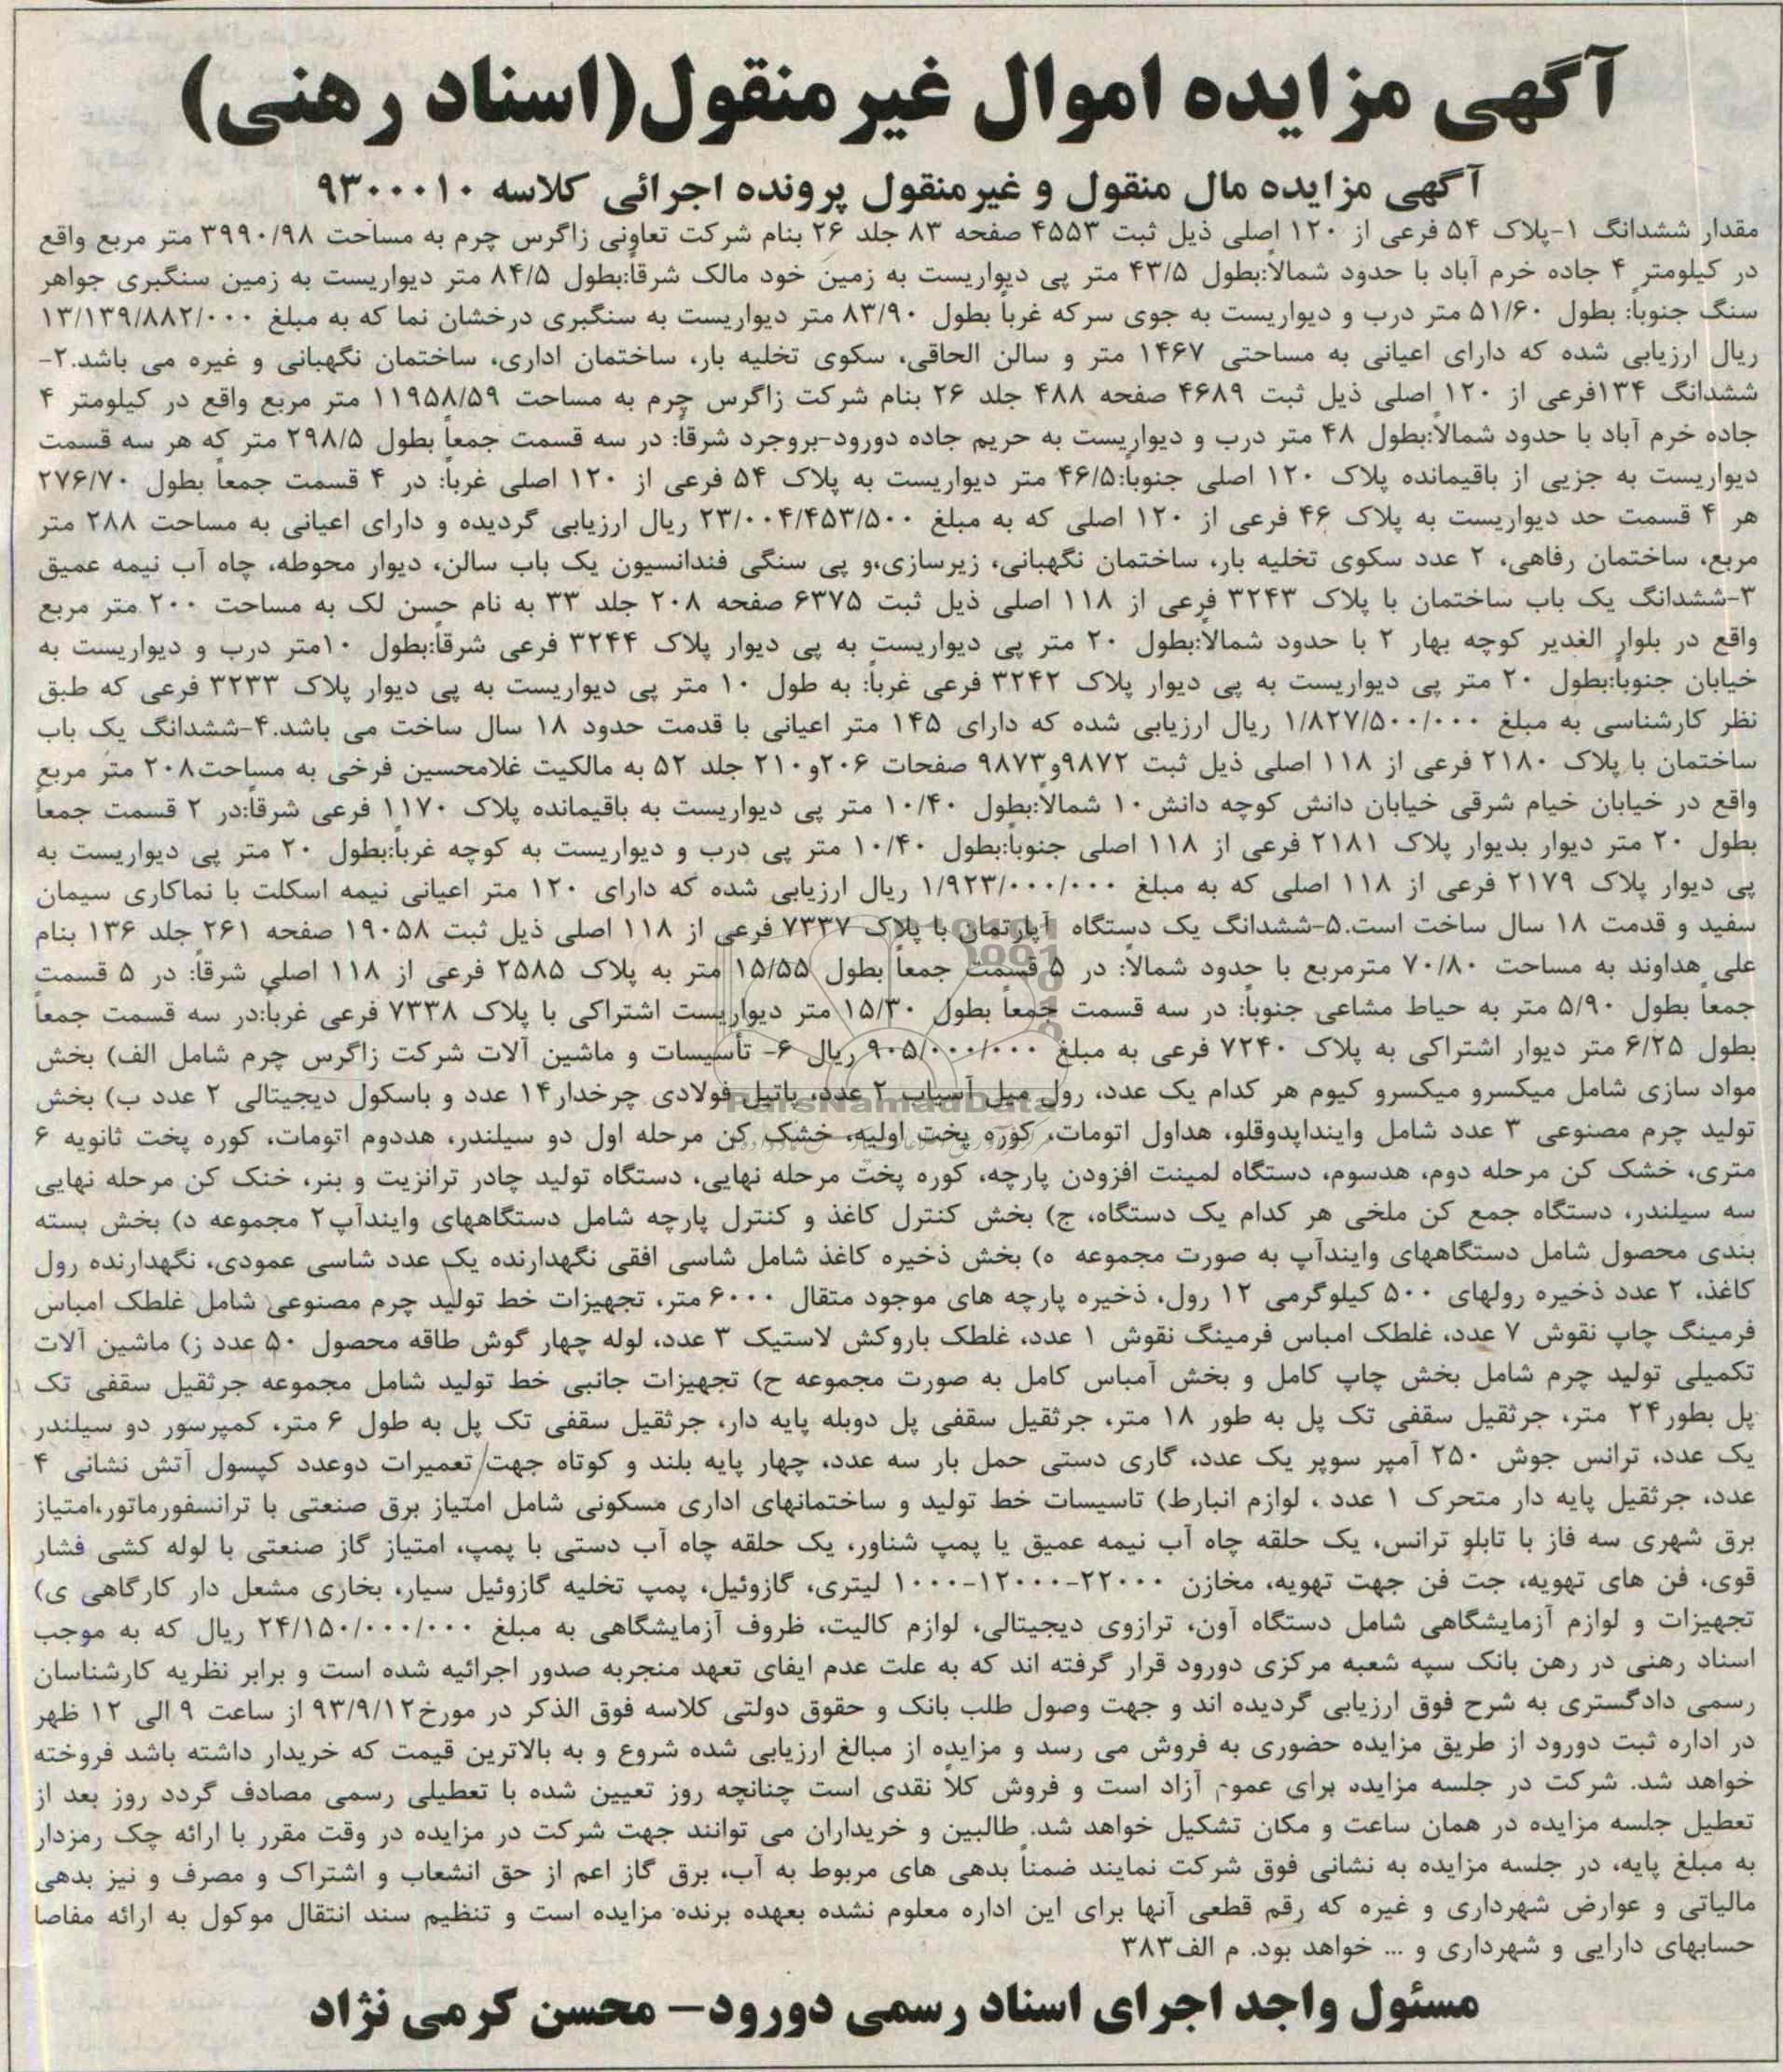 آگهی مزایده اموال غیرمنقول(اسناد رهنی)
آگهی مزایده مال منقول و غیرمنقول پرونده اجرائی کلاسه ۹۳۰۰۰۱۰
مقدار ششدانگ ۱-پلاک ۵۴ فرعی از ۱۲۰ اصلی ذیل ثبت ۴۵۵۳ صفحه ۸۳ جلد ۲۶ بنام شرکت تعاونی زاگرس چرم به مساحت ۳۹۹۰/۹۸ متر مربع واقع
در کیلومتر ۴ جاده خرم آباد با حدود شمالاً:بطول ۴۳/۵ متر پی دیواریست به زمین خود مالک شرقاً:بطول ۸۴/۵ متر دیواریست به زمین سنگبری جواهر
سنگ جنوباً: بطول ۵۱/۶۰ متر درب و دیواریست به جوی سرکه غرباً بطول ۸۳/۹۰ متر دیواریست به سنگبری درخشان نما که به مبلغ ۱۳/۱۳۹/۸۸۲/۰۰۰
ریال ارزیابی شده که دارای اعیانی به مساحتی ۱۴۶۷ متر و سالن الحاقی، سکوی تخلیه بار، ساختمان اداری، ساختمان نگهبانی و غیره می باشد.۲-
ششدانگ ۱۳۴فرعی از ۱۲۰ اصلی ذیل ثبت ۴۶۸۹ صفحه ۴۸۸ جلد ۲۶ بنام شرکت زاگرس چرم به مساحت ۱۱۹۵۸/۵۹ متر مربع واقع در کیلومتر ۴
جاده خرم آباد با حدود شمالاً:بطول ۴۸ متر درب و دیواریست به حریم جاده دورود-بروجرد شرقاً: در سه قسمت جمعاً بطول ۲۹۸/۵ متر که هر سه قسمت
دیواریست به جزیی از باقیمانده پلاک ۱۲۰ اصلی جنوباً:۴۶/۵ متر دیواریست به پلاک ۵۴ فرعی از ۱۲۰ اصلی غرباً: در ۴ قسمت جمعاً بطول ۲۷۶/۷۰
هر ۴ قسمت حد دیواریست به پلاک ۴۶ فرعی از ۱۲۰ اصلی که به مبلغ ۲۳/۰۰۴/۴۵۳/۵۰۰ ریال ارزیابی گردیده و دارای اعیانی به مساحت ۲۸۸ متر
مربع، ساختمان رفاهی، ۲ عدد سکوی تخلیه بار، ساختمان نگهبانی، زیرسازی،و پی سنگی فندانسیون یک باب سالن، دیوار محوطه، چاه آب نیمه عمیق
۳-ششدانگ یک باب ساختمان با پلاک ۳۲۴۳ فرعی از ۱۱۸ اصلی ذیل ثبت ۶۳۷۵ صفحه ۲۰۸ جلد ۳۳ به نام حسن لک به مساحت ۲۰۰ متر مربع
واقع در بلوار الغدیر کوچه بهار ۲ با حدود شمالاً:بطول ۲۰ متر پی دیواریست به پی دیوار پلاک ۳۲۴۴ فرعی شرقاً:بطول ۱۰متر درب و دیواریست به
خیابان جنوباً:بطول ۲۰ متر پی دیواریست به پی دیوار پلاک ۳۲۴۲ فرعی غرباً: به طول ۱۰ متر پی دیواریست به پی دیوار پلاک ۳۲۳۳ فرعی که طبق
نظر کارشناسی به مبلغ ۱/۸۲۷/۵۰۰/۰۰۰ ریال ارزیابی شده که دارای ۱۴۵ متر اعیانی با قدمت حدود ۱۸ سال ساخت می باشد.۴-ششدانگ یک باب
ساختمان با پلاک ۲۱۸۰ فرعی از ۱۱۸ اصلی ذیل ثبت ۹۸۷۲و۹۸۷۳ صفحات ۲۰۶و۲۱۰ جلد ۵۲ به مالکیت غلامحسین فرخی به مساحت۲۰۸ متر مربع
واقع در خیابان خیام شرقی خیابان دانش کوچه دانش۱۰ شمالاً:بطول ۱۰/۴۰ متر پی دیواریست به باقیمانده پلاک ۱۱۷۰ فرعی شرقاً:در ۲ قسمت جمعاً
بطول ۲۰ متر دیوار بدیوار پلاک ۲۱۸۱ فرعی از ۱۱۸ اصلی جنوباً:بطول ۱۰/۴۰ متر پی درب و دیواریست به کوچه غرباً:بطول ۲۰ متر پی دیواریست به
پی دیوار پلاک ۲۱۷۹ فرعی از ۱۱۸ اصلی که به مبلغ ۱/۹۲۳/۰۰۰/۰۰۰ ریال ارزیابی شده که دارای ۱۲۰ متر اعیانی نیمه اسکلت با نماکاری سیمان
سفید و قدمت ۱۸ سال ساخت است.۵-ششدانگ یک دستگاه آپارتمان با پلاک ۷۳۳۷ فرعی از ۱۱۸ اصلی ذیل ثبت ۱۹۰۵۸ صفحه ۲۶۱ جلد ۱۳۶ بنام
علی هداوند به مساحت ۷۰/۸۰ مترمربع با حدود شمالاً: در ۵ قسمت جمعاً بطول ۱۵/۵۵ متر به پلاک ۲۵۸۵ فرعی از ۱۱۸ اصلی شرقاً: در ۵ قسمت
جمعاً بطول ۵/۹۰ متر به حیاط مشاعی جنوباً: در سه قسمت جمعاً بطول ۱۵/۳۰ متر دیواریست اشتراکی با پلاک ۷۳۳۸ فرعی غرباً:در سه قسمت جمعاً
بطول ۶/۲۵ متر دیوار اشتراکی به پلاک ۷۲۴۰ فرعی به مبلغ ۹۰۵/۰۰۰/۰۰۰ ریال ۶- تأسیسات و ماشین آلات شرکت زاگرس چرم شامل الف) بخش
مواد سازی شامل میکسرو میکسرو کیوم هر کدام یک عدد، رول میل آسیاب ۲ عدد، پاتیل فولادی چرخدار۱۴ عدد و باسکول دیجیتالی ۲ عدد ب) بخش
تولید چرم مصنوعی ۳ عدد شامل وایندابدوقلو، هداول اتومات، کوره پخت اولیه، خشک کن مرحله اول دو سیلندر، هددوم اتومات، کوره پخت ثانویه ۶
متری، خشک کن مرحله دوم، هدسوم، دستگاه لمینت افزودن پارچه، کوره پخت مرحله نهایی، دستگاه تولید چادر ترانزیت و بنر، خنک کن مرحله نهایی
سه سیلندر، دستگاه جمع کن ملخی هر کدام یک دستگاه، ج) بخش کنترل کاغذ و کنترل پارچه شامل دستگاههای وایندآپ۲ مجموعه د) بخش بسته
بندی محصول شامل دستگاههای وایندآپ به صورت مجموعه ه) بخش ذخیره کاغذ شامل شاسی افقی نگهدارنده یک عدد شاسی عمودی، نگهدارنده رول
کاغذ، ۲ عدد ذخیره رولهای ۵۰۰ کیلوگرمی ۱۲ رول، ذخیره پارچه های موجود متقال ۶۰۰۰ متر، تجهیزات خط تولید چرم مصنوعی شامل غلطک امباس
فرمینگ چاپ نقوش ۷ عدد، غلطک امباس فرمینگ نقوش ۱ عدد، غلطک باروکش لاستیک ۳ عدد، لوله چهار گوش طاقه محصول ۵۰ عدد ز) ماشین آلات
تکمیلی تولید چرم شامل بخش چاپ کامل و بخش آمباس کامل به صورت مجموعه ح) تجهیزات جانبی خط تولید شامل مجموعه جرثقیل سقفی تک
پل بطور۲۴ متر، جرثقیل سقفی تک پل به طور ۱۸ متر، جرثقیل سقفی پل دوبله پایه دار، جرثقیل سقفی تک پل به طول ۶ متر، کمپرسور دو سیلندر
یک عدد، ترانس جوش ۲۵۰ آمپر سوپر یک عدد، گاری دستی حمل بار سه عدد، چهار پایه بلند و کوتاه جهت تعمیرات دوعدد کپسول آتش نشانی ۴
عدد، جرثقیل پایه دار متحرک ۱ عدد ، لوازم انبارط) تاسیسات خط تولید و ساختمانهای اداری مسکونی شامل امتیاز برق صنعتی با ترانسفورماتور،امتیاز
برق شهری سه فاز با تابلو ترانس، یک حلقه چاه آب نیمه عمیق یا پمپ شناور، یک حلقه چاه آب دستی با پمپ، امتیاز گاز صنعتی با لوله کشی فشار
قوی، فن های تهویه، جت فن جهت تهویه، مخازن ۲۲۰۰۰-۱۲۰۰۰-۱۰۰۰ لیتری، گازوئیل، پمپ تخلیه گازوئیل سیار، بخاری مشعل دار کارگاهی ی)
تجهیزات و لوازم آزمایشگاهی شامل دستگاه آون، ترازوی دیجیتالی، لوازم کالیت، ظروف آزمایشگاهی به مبلغ ۲۴/۱۵۰/۰۰۰/۰۰۰ ریال که به موجب
اسناد رهنی در رهن بانک سپه شعبه مرکزی دورود قرار گرفته اند که به علت عدم ایفای تعهد منجربه صدور اجرائیه شده است و برابر نظریه کارشناسان
رسمی دادگستری به شرح فوق ارزیابی گردیده اند و جهت وصول طلب بانک و حقوق دولتی کلاسه فوق الذکر در مورخ۹۳/۹/۱۲ از ساعت ۹ الی ۱۲ ظهر
در اداره ثبت دورود از طریق مزایده حضوری به فروش می رسد و مزایده از مبالغ ارزیابی شده شروع و به بالاترین قیمت که خریدار داشته باشد فروخته
خواهد شد. شرکت در جلسه مزایده برای عموم آزاد است و فروش کلاً نقدی است چنانچه روز تعیین شده با تعطیلی رسمی مصادف گردد روز بعد از
تعطیل جلسه مزایده در همان ساعت و مکان تشکیل خواهد شد. طالبین و خریداران می توانند جهت شرکت در مزایده در وقت مقرر با ارائه چک رمزدار
به مبلغ پایه، در جلسه مزایده به نشانی فوق شرکت نمایند ضمناً بدهی های مربوط به آب، برق گاز اعم از حق انشعاب و اشتراک و مصرف و نیز بدهی
مالیاتی و عوارض شهرداری و غیره که رقم قطعی آنها برای این اداره معلوم نشده بعهده برنده مزایده است و تنظیم سند انتقال موکول به ارائه مفاصا
حسابهای دارایی و شهرداری و ... خواهد بود. م الف۳۸۳
مسئول واحد اجرای اسناد رسمی دورود– محسن کرمی نژاد
ParsNamadData